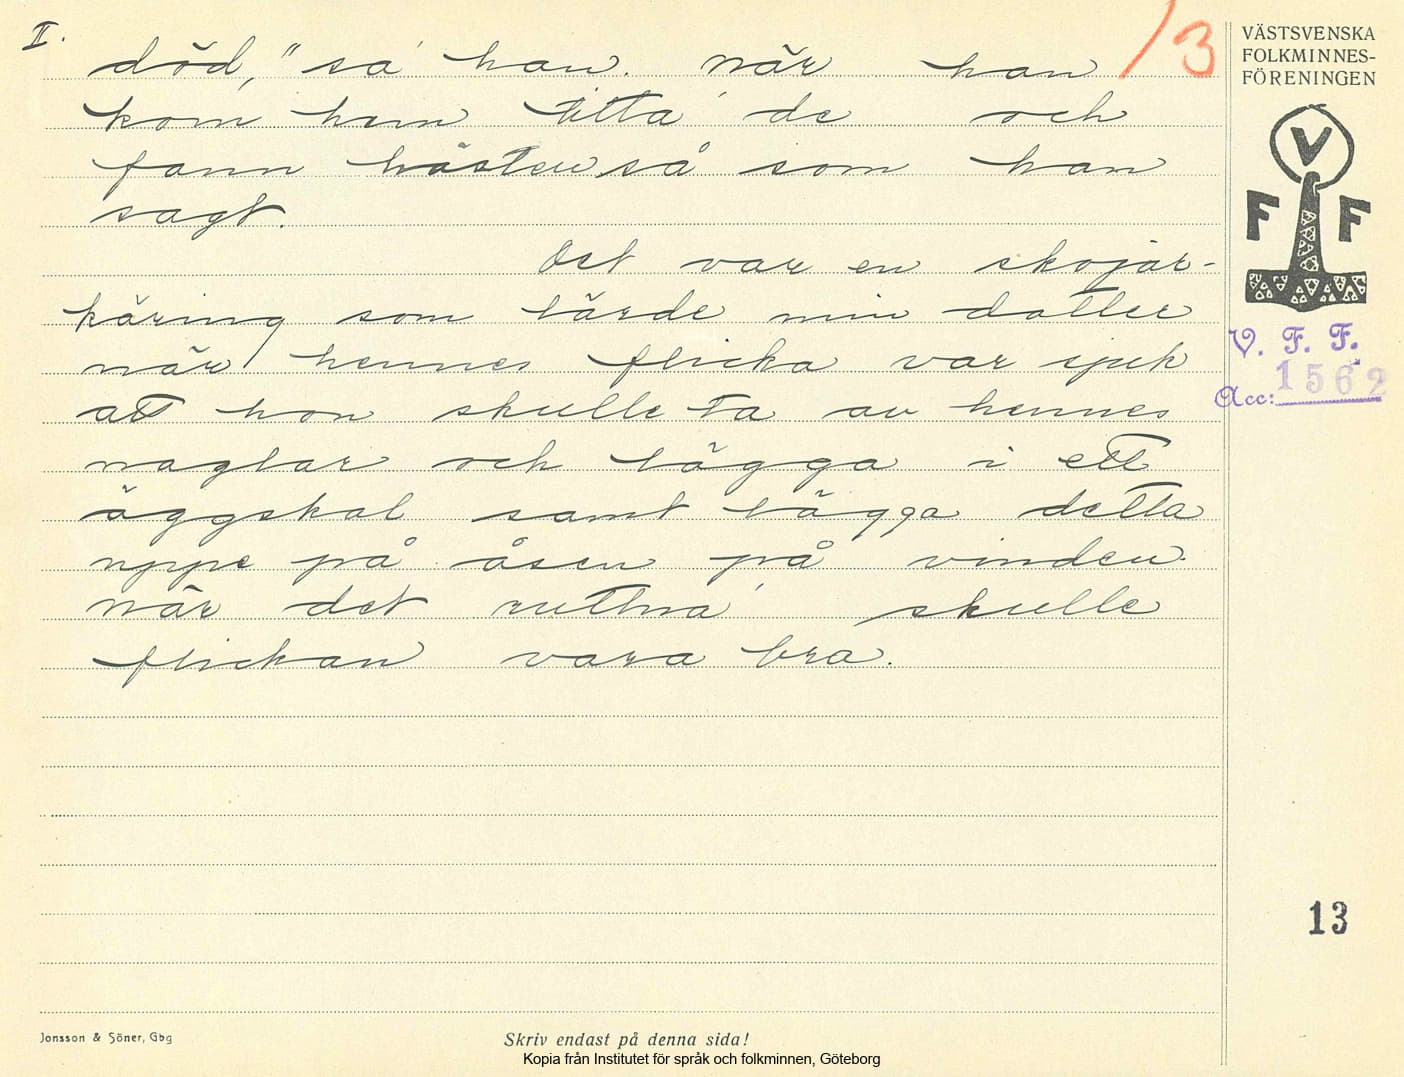 II.
13
död," sa' han. När han
kom' hem titta' de och
fann hästen så som han
sagt.
Det var en skojar-
käring som lärde min dotter
när hennes flicka var sjuk
att hon skulle ta av hennes
naglar och lägga i ett
äggskal samt lägga detta
uppe på åsen på vinden.
När det ruttna' skulle
flickan vara bra.
VÄSTSVENSKA
FOLKMINNES-
FÖRENINGEN
V
F F
V. F. F.
Acc: 1562
13
Jonsson & Söner, Gbg
Skriv endast på denna sida!
Kopia från Institutet för språk och folkminnen, Göteborg